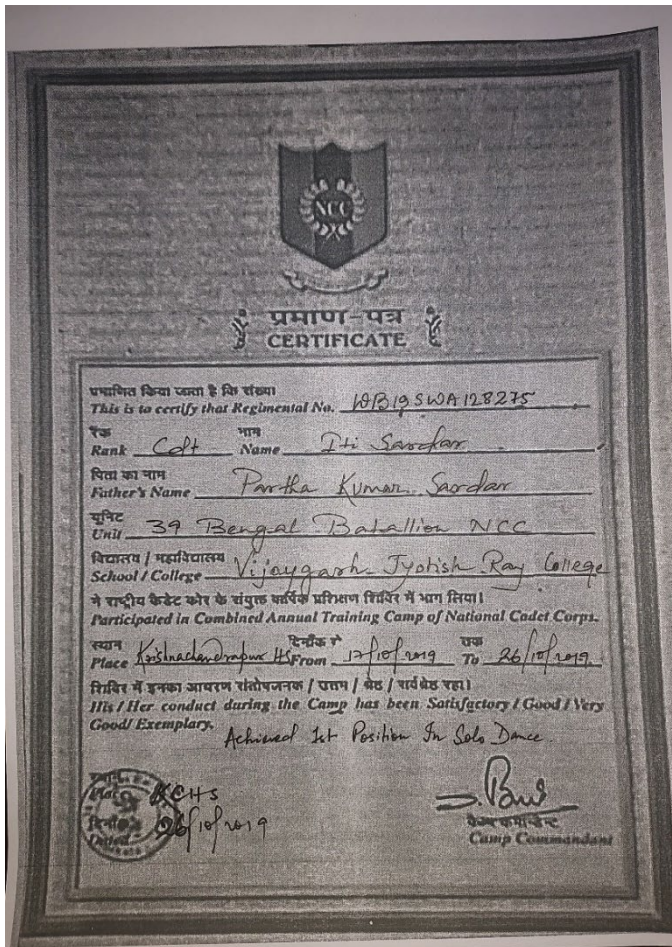 NCC
प्रमाण-पत्र
CERTIFICATE
प्रमाणित किया जाता है कि संख्या
This is to certify that Regimental No. WB19SWA128275
रैंक नाम
Rank Cdt Name Iti Sardar
पिता का नाम
Father's Name Partha Kumar Sardar
यूनिट
Unit 39 Bengal Batallion NCC
विद्यालय / महाविद्यालय
School / College Vijaygarh Jyotish Ray College
ने राष्ट्रीय कैडेट कोर के संयुक्त वार्षिक प्रशिक्षण शिविर में भाग लिया।
Participated in Combined Annual Training Camp of National Cadet Corps.
स्थान दिनाँक से तक
Place Krishnachandrapur HS From 17/10/2019 To 26/10/2019
शिविर में इनका आचरण संतोषजनक / उत्तम / श्रेष्ठ / सर्वश्रेष्ठ रहा।
His / Her conduct during the Camp has been Satisfactory / Good / Very
Good / Exemplary.
Achieved 1st Position In Solo Dance.
Place KCHS
दिनाँक
Dated 26/10/2019
कैम्प कमान्डेन्ट
Camp Commandant